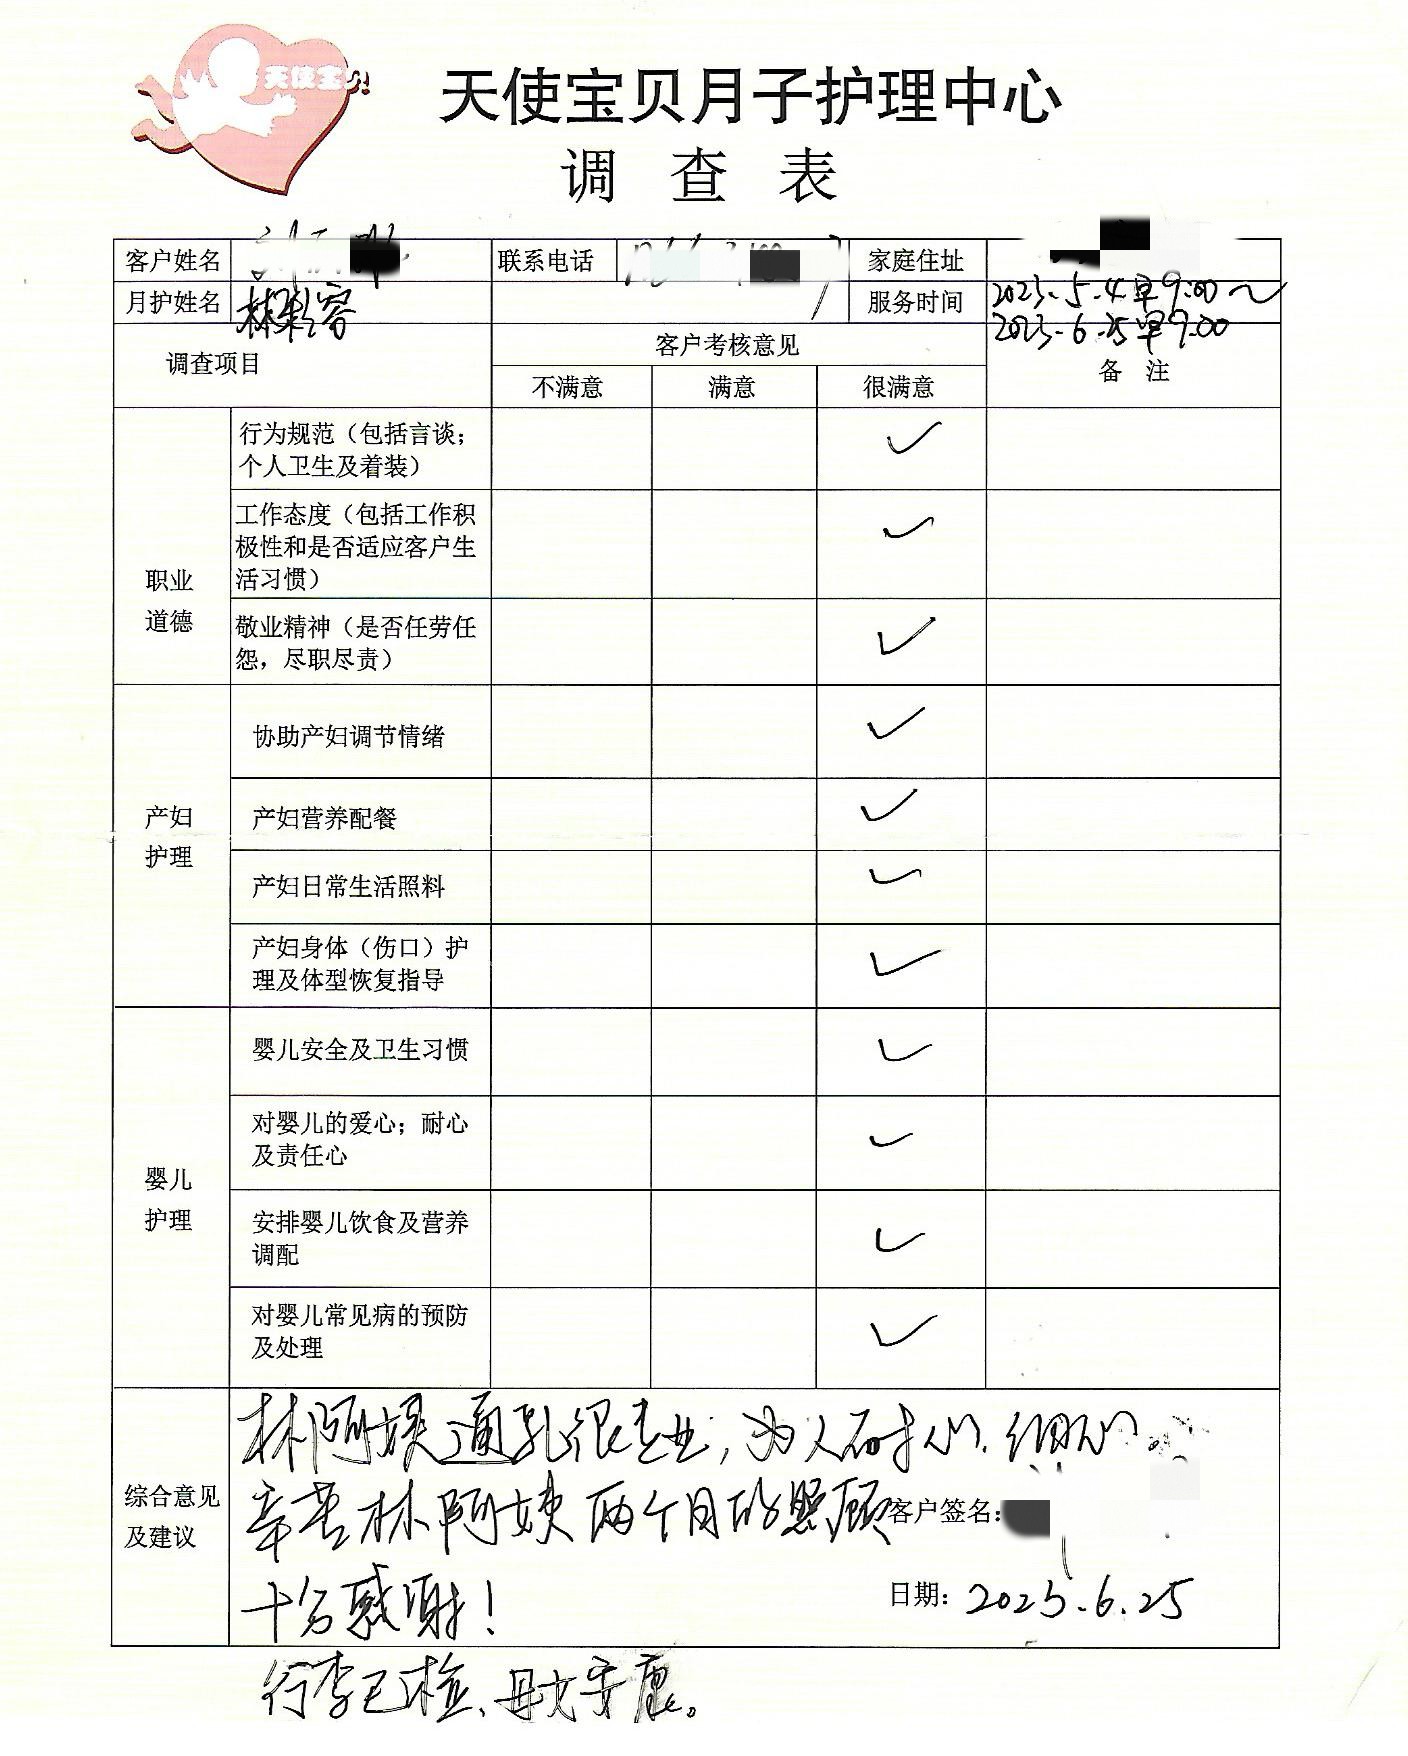 天使宝贝
天使宝贝月子护理中心
调 查 表
客户姓名
联系电话
家庭住址
月护姓名 林彩容
服务时间 2023.5.4早9:00～
2023.6.25早9:00
调查项目
客户考核意见
备 注
不满意 满意 很满意
职业
道德
行为规范（包括言谈；
个人卫生及着装）
✓
工作态度（包括工作积
极性和是否适应客户生
活习惯）
✓
敬业精神（是否任劳任
怨，尽职尽责）
✓
产妇
护理
协助产妇调节情绪 ✓
产妇营养配餐 ✓
产妇日常生活照料 ✓
产妇身体（伤口）护
理及体型恢复指导
✓
婴儿
护理
婴儿安全及卫生习惯 ✓
对婴儿的爱心；耐心
及责任心
✓
安排婴儿饮食及营养
调配
✓
对婴儿常见病的预防
及处理
✓
综合意见
及建议
林阿姨通乳很专业，为人耐心、细心。
辛苦林阿姨两个月的照顾
客户签名：
十分感谢！
日期：2023.6.25
行李已检、母女安康。